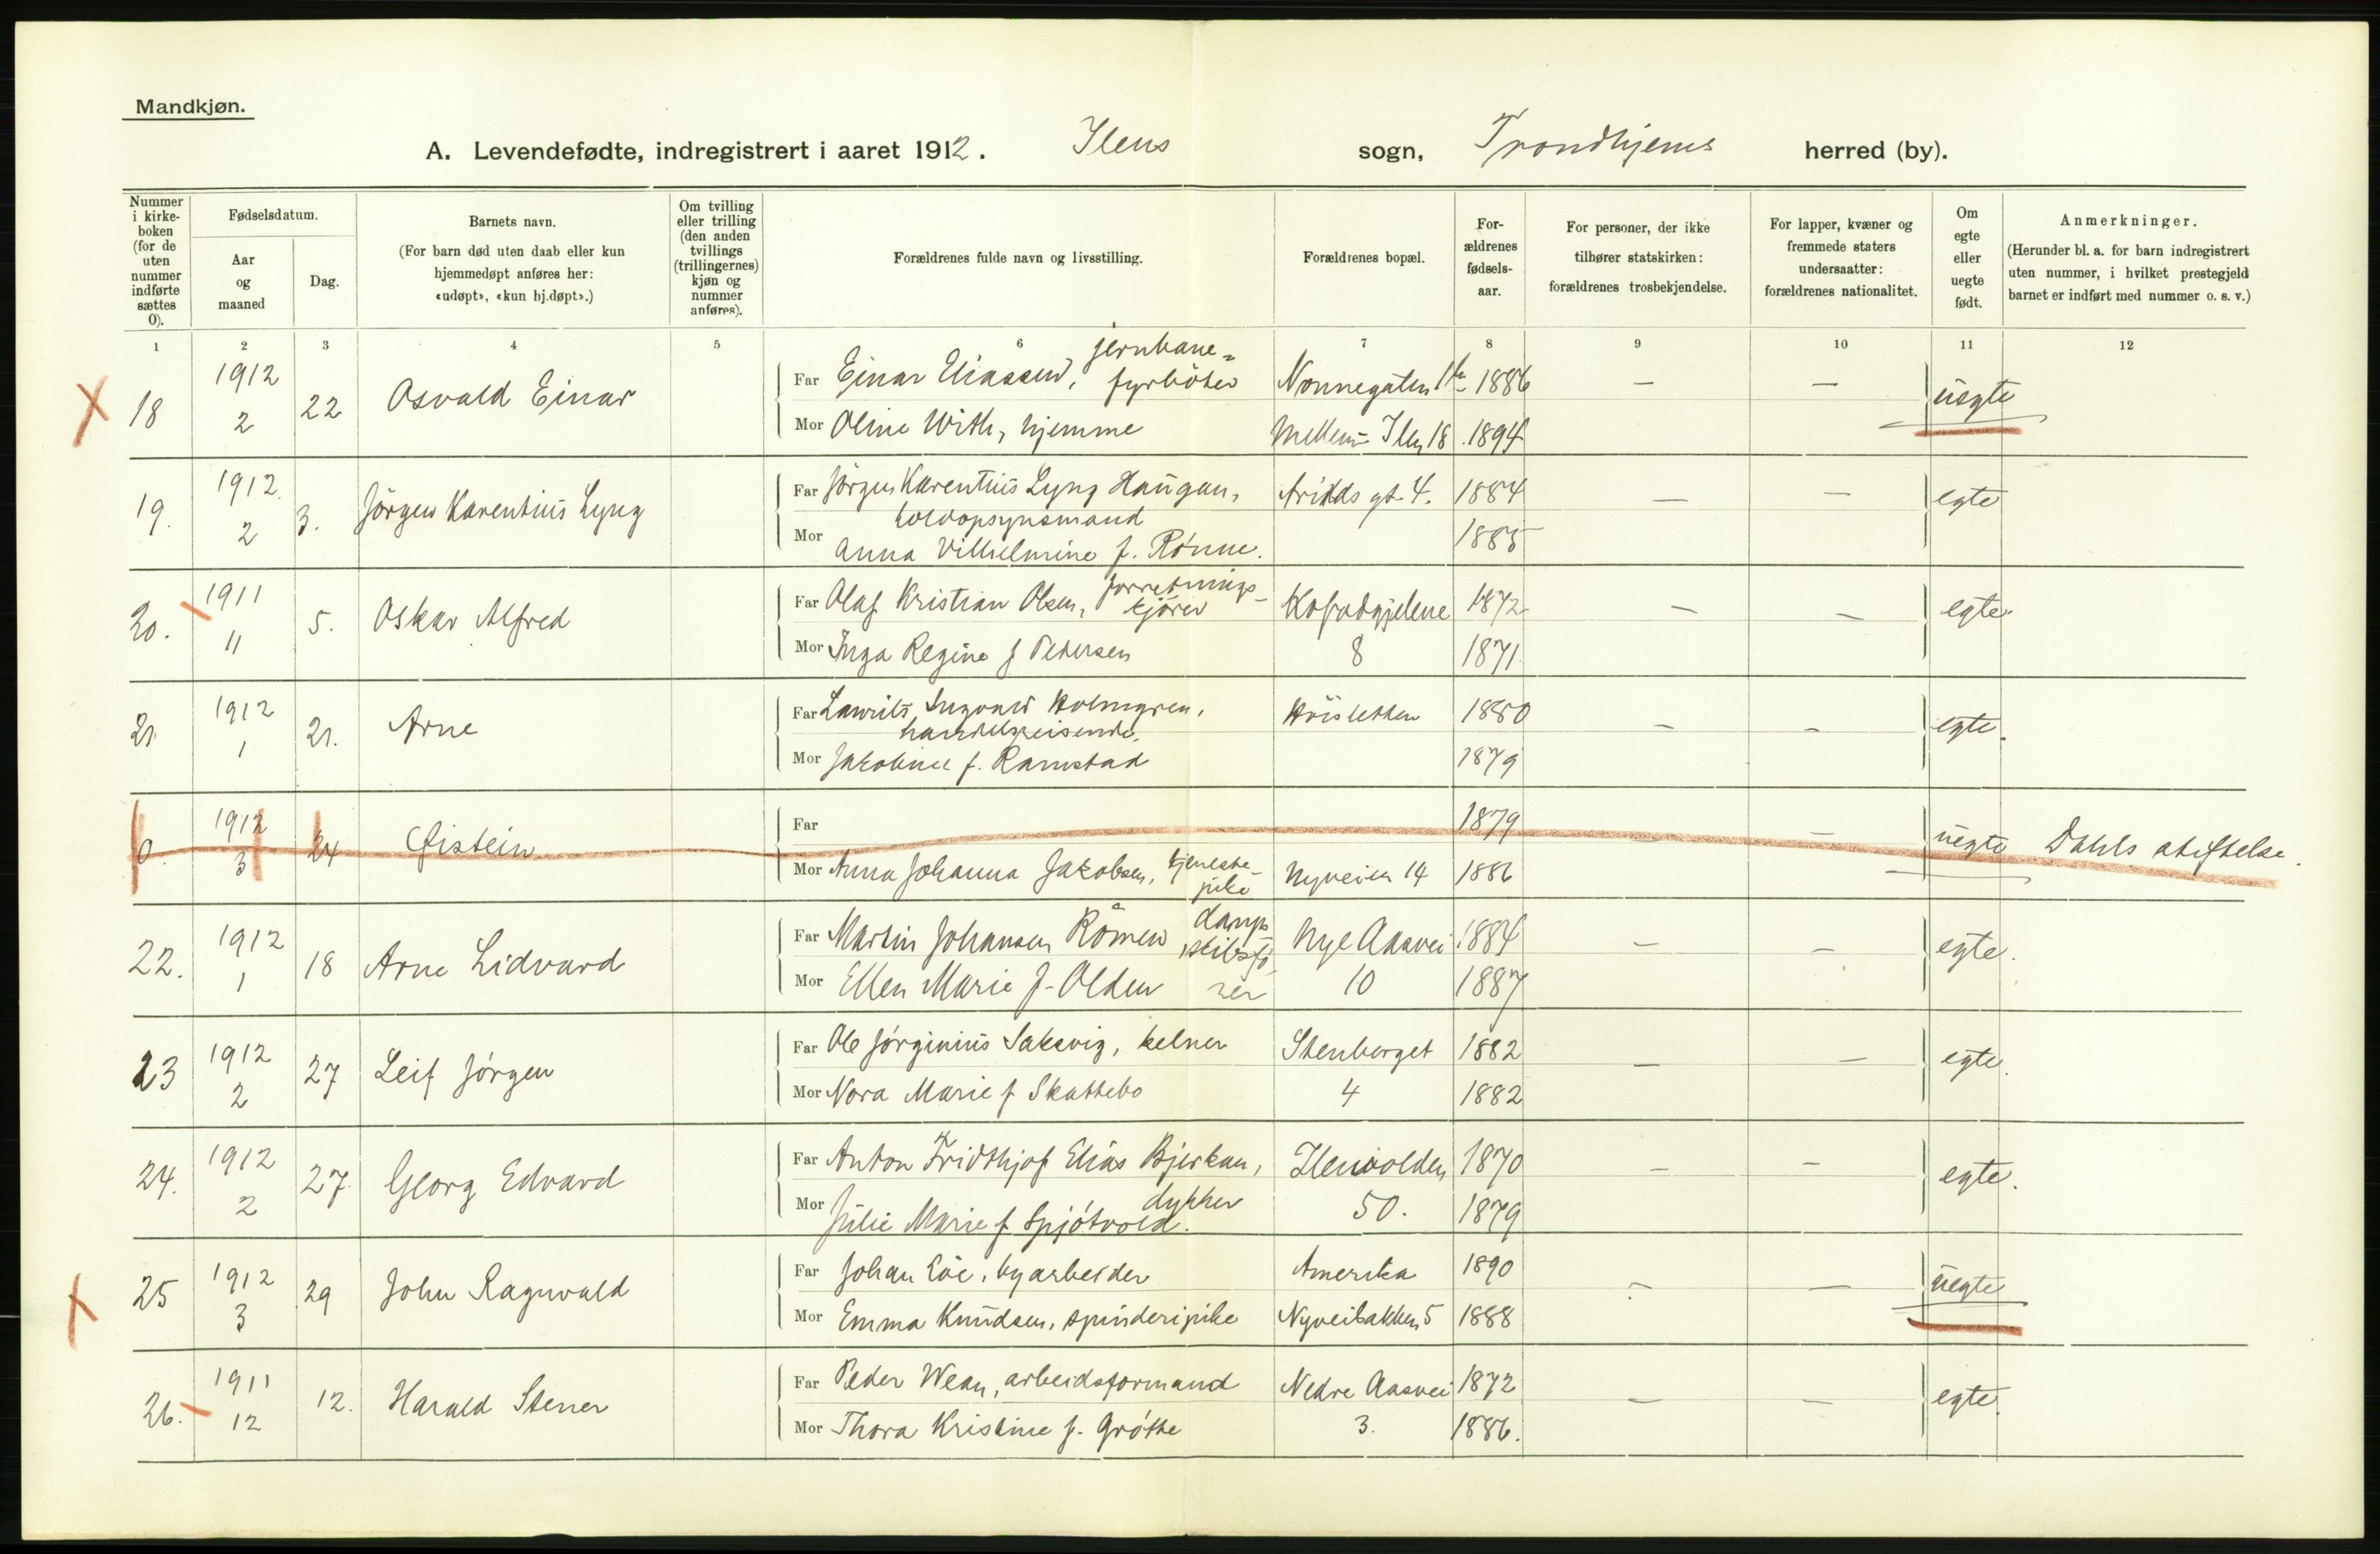 Mandkjøn.
A. Levendefødte, indregistrert i aaret 1912. Ilens sogn, Trondhjems herred (by).
Nummer i kirke-boken (for de uten nummer indførte sættes 0).
Fødselsdatum.
Aar og maaned
Dag.
Barnets navn.
(For barn død uten daab eller kun hjemmedøpt anføres her: «udøpt», «kun hj.døpt».)
Om tvilling eller trilling (den anden tvillings (trillingernes) kjøn og nummer anføres).
Forældrenes fulde navn og livsstilling.
Forældrenes bopæl.
For-ældrenes fødsels-aar.
For personer, der ikke tilhører statskirken: forældrenes trosbekjendelse.
For lapper, kvæner og fremmede staters undersaatter: forældrenes nationalitet.
Om egte eller uegte født.
Anmerkninger.
(Herunder bl. a. for barn indregistrert uten nummer, i hvilket prestegjeld barnet er indført med nummer o. s. v.)
1 2 3 4 5 6 7 8 9 10 11 12
18 1912 2 22 Osvald Einar
Far Einar Eliassen, jernbane=fyrböter Nonnegaten 1886 — — uegte
Mor Oline With, hjemme Mellem Ilen 18 1894
19. 1912 2 3. Jörgen Karentius Lyng
Far Jörgen Karentius Lyng Haugan, Arilds gt. 4. 1884 — — egte
toldopsynsmand
Mor Anna Vilhelmine f. Rönne. 1885
20. 1911 11 5. Oskar Alfred
Far Olaf Kristian Olsen, forretnings-kjörer 1872 — — egte.
Mor Inga Regine f Petersen 8 1871.
21. 1912 1 21. Arne
Far Laurits Ingvard Holmgren, 1880 — — egte.
handelsreisende.
Mor Jakobine f. Ramstad 1879
0. 1912 3 24 Øistein
Far 1879 — uegte Dahls stiftelse.
Mor Anna Johanna Jakobsen, tjeneste-pike Nyveien 14 1886
22. 1912 1 18 Arne Lidvard
Far Martin Johansen Römen dampskibsfö- Nye Aasvei 1884 — — egte.
Mor Ellen Marie f. Olden rer 10 1887
23 1912 2 27 Leif Jörgen
Far Ole Jörginius Saksvig, kelner Stenberget 1882 — — egte.
Mor Nora Marie f Skattebo 4 1882
24. 1912 2 27. Georg Edvard
Far Anton Fridthjof Elias Bjerkan, Ilenvolden 1870 — — egte.
dykker
Mor Julie Marie f. Spjötvold. 50. 1879
25 1912 3 29 John Ragnvald
Far Johan Löe, byarbeider Amerika 1890 — — uegte
Mor Emma Knudsen, spinderipike Nyveibakken 5 1888
26. 1911 12 12. Harald Stener
Far Peder Wean, arbeidsformand Nedre Aasvei 1872 — — egte.
Mor Thora Kristine f. Gröthe 3. 1886.